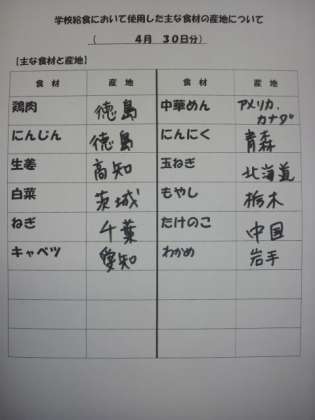 学校給食において使用した主な食材の産地について
( 4月 30日分)
【主な食材と産地】
食材 産地 食材 産地
鶏肉 徳島 中華めん アメリカ、カナダ
にんじん 徳島 にんにく 青森
生姜 高知 玉ねぎ 北海道
白菜 茨城 もやし 栃木
ねぎ 千葉 たけのこ 中国
キャベツ 愛知 わかめ 岩手